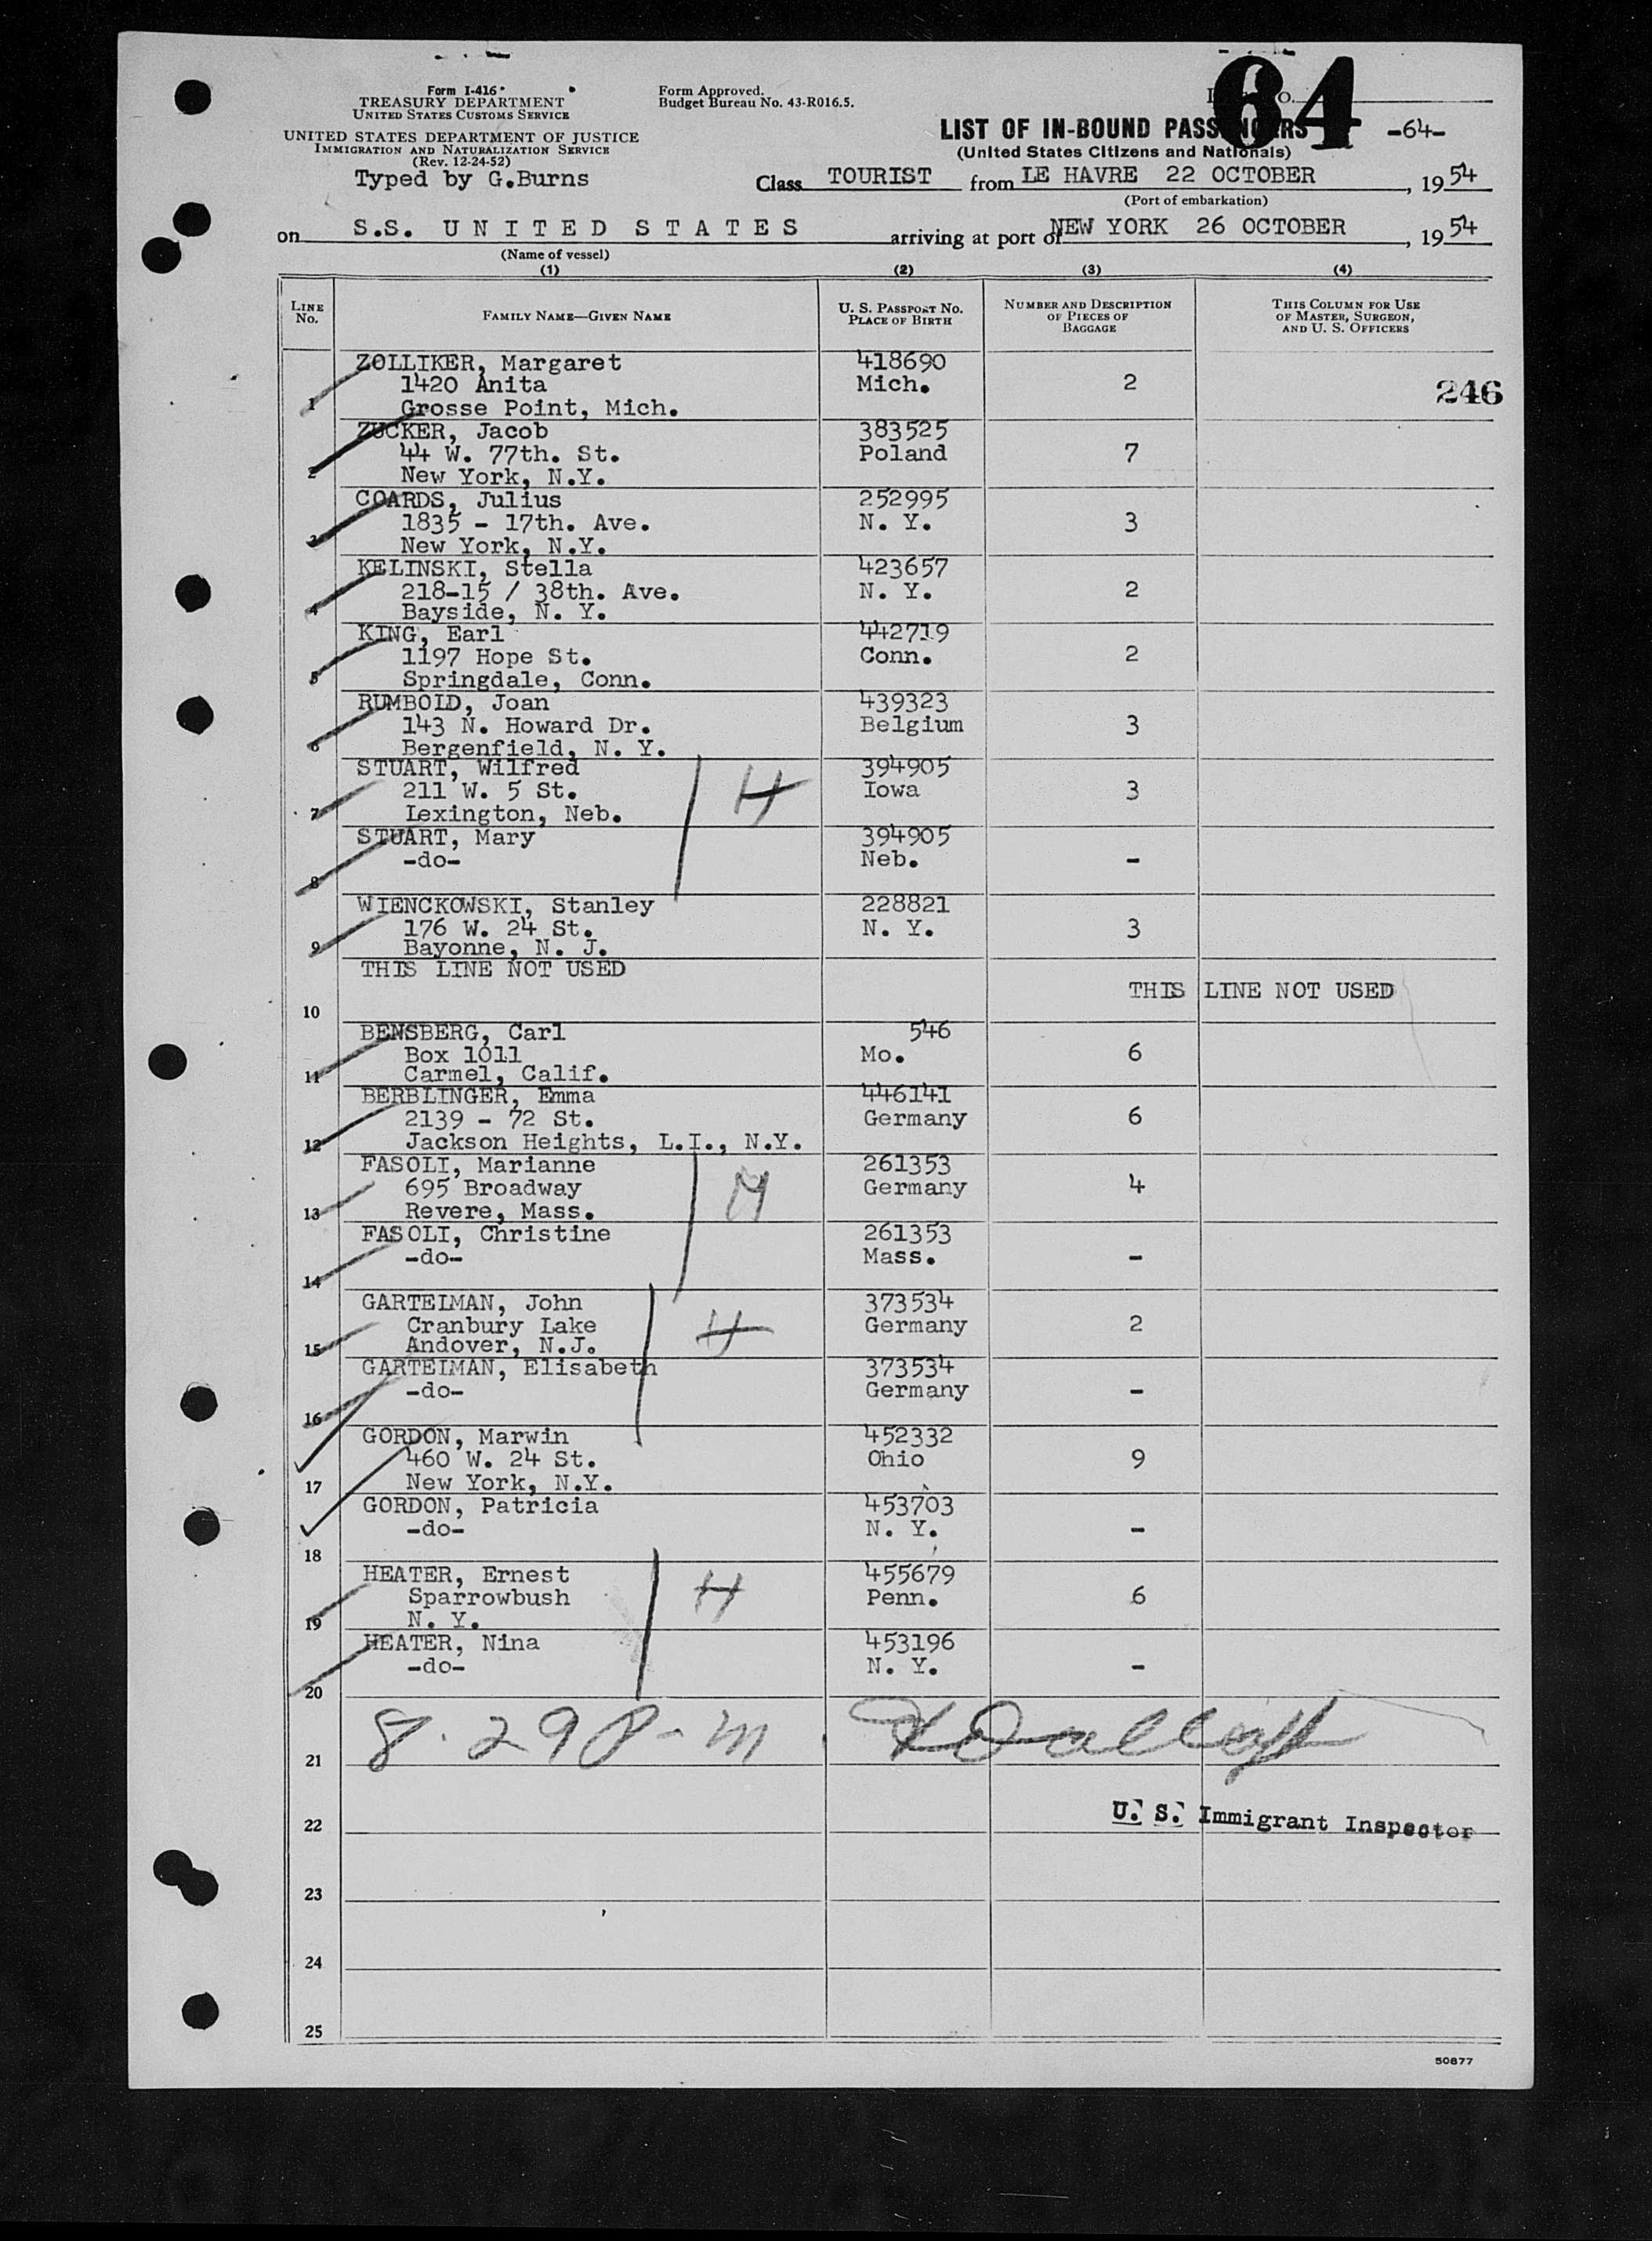 Form I-416
TREASURY DEPARTMENT
UNITED STATES CUSTOMS SERVICE
UNITED STATES DEPARTMENT OF JUSTICE
IMMIGRATION AND NATURALIZATION SERVICE
(Rev. 12-24-52)
Typed by G.Burns
Form Approved.
Budget Bureau No. 43-R016.5.
64
LIST OF IN-BOUND PASSENGERS -64-
(United States Citizens and Nationals)
Class TOURIST from LE HAVRE 22 OCTOBER, 1954
(Port of embarkation)
on S.S. UNITED STATES arriving at port of NEW YORK 26 OCTOBER, 1954
(Name of vessel)
(1) (2) (3) (4)
LINE No. FAMILY NAME—GIVEN NAME U. S. PASSPORT NO. PLACE OF BIRTH NUMBER AND DESCRIPTION OF PIECES OF BAGGAGE THIS COLUMN FOR USE OF MASTER, SURGEON, AND U. S. OFFICERS
ZOLLIKER, Margaret 418690
1420 Anita Mich. 2 246
1 Grosse Point, Mich.
ZUCKER, Jacob 383525
44 W. 77th. St. Poland 7
2 New York, N.Y.
COARDS, Julius 252995
1835 - 17th. Ave. N. Y. 3
3 New York, N.Y.
KELINSKI, Stella 423657
218-15 / 38th. Ave. N. Y. 2
4 Bayside, N. Y.
KING, Earl 442719
1197 Hope St. Conn. 2
5 Springdale, Conn.
RUMBOLD, Joan 439323
143 N. Howard Dr. Belgium 3
6 Bergenfield, N. Y.
STUART, Wilfred 394905
211 W. 5 St. H Iowa 3
7 Lexington, Neb.
STUART, Mary 394905
-do- Neb. -
8
WIENCKOWSKI, Stanley 228821
176 W. 24 St. N. Y. 3
9 Bayonne, N. J.
THIS LINE NOT USED
THIS LINE NOT USED
10
BENSBERG, Carl 546
Box 1011 Mo. 6
11 Carmel, Calif.
BERBLINGER, Emma 446141
2139 - 72 St. Germany 6
12 Jackson Heights, L.I., N.Y.
FASOLI, Marianne 261353
695 Broadway Germany 4
13 Revere, Mass.
FASOLI, Christine 261353
-do- Mass. -
14
GARTEIMAN, John 373534
Cranbury Lake H Germany 2
15 Andover, N.J.
GARTEIMAN, Elisabeth 373534
-do- Germany -
16
GORDON, Marwin 452332
460 W. 24 St. Ohio 9
17 New York, N.Y.
GORDON, Patricia 453703
-do- N. Y. -
18
HEATER, Ernest 455679
Sparrowbush H Penn. 6
19 N. Y.
HEATER, Nina 453196
-do- N. Y. -
20
8.29 P-m
21
U. S. Immigrant Inspector
22
23
24
25
50877